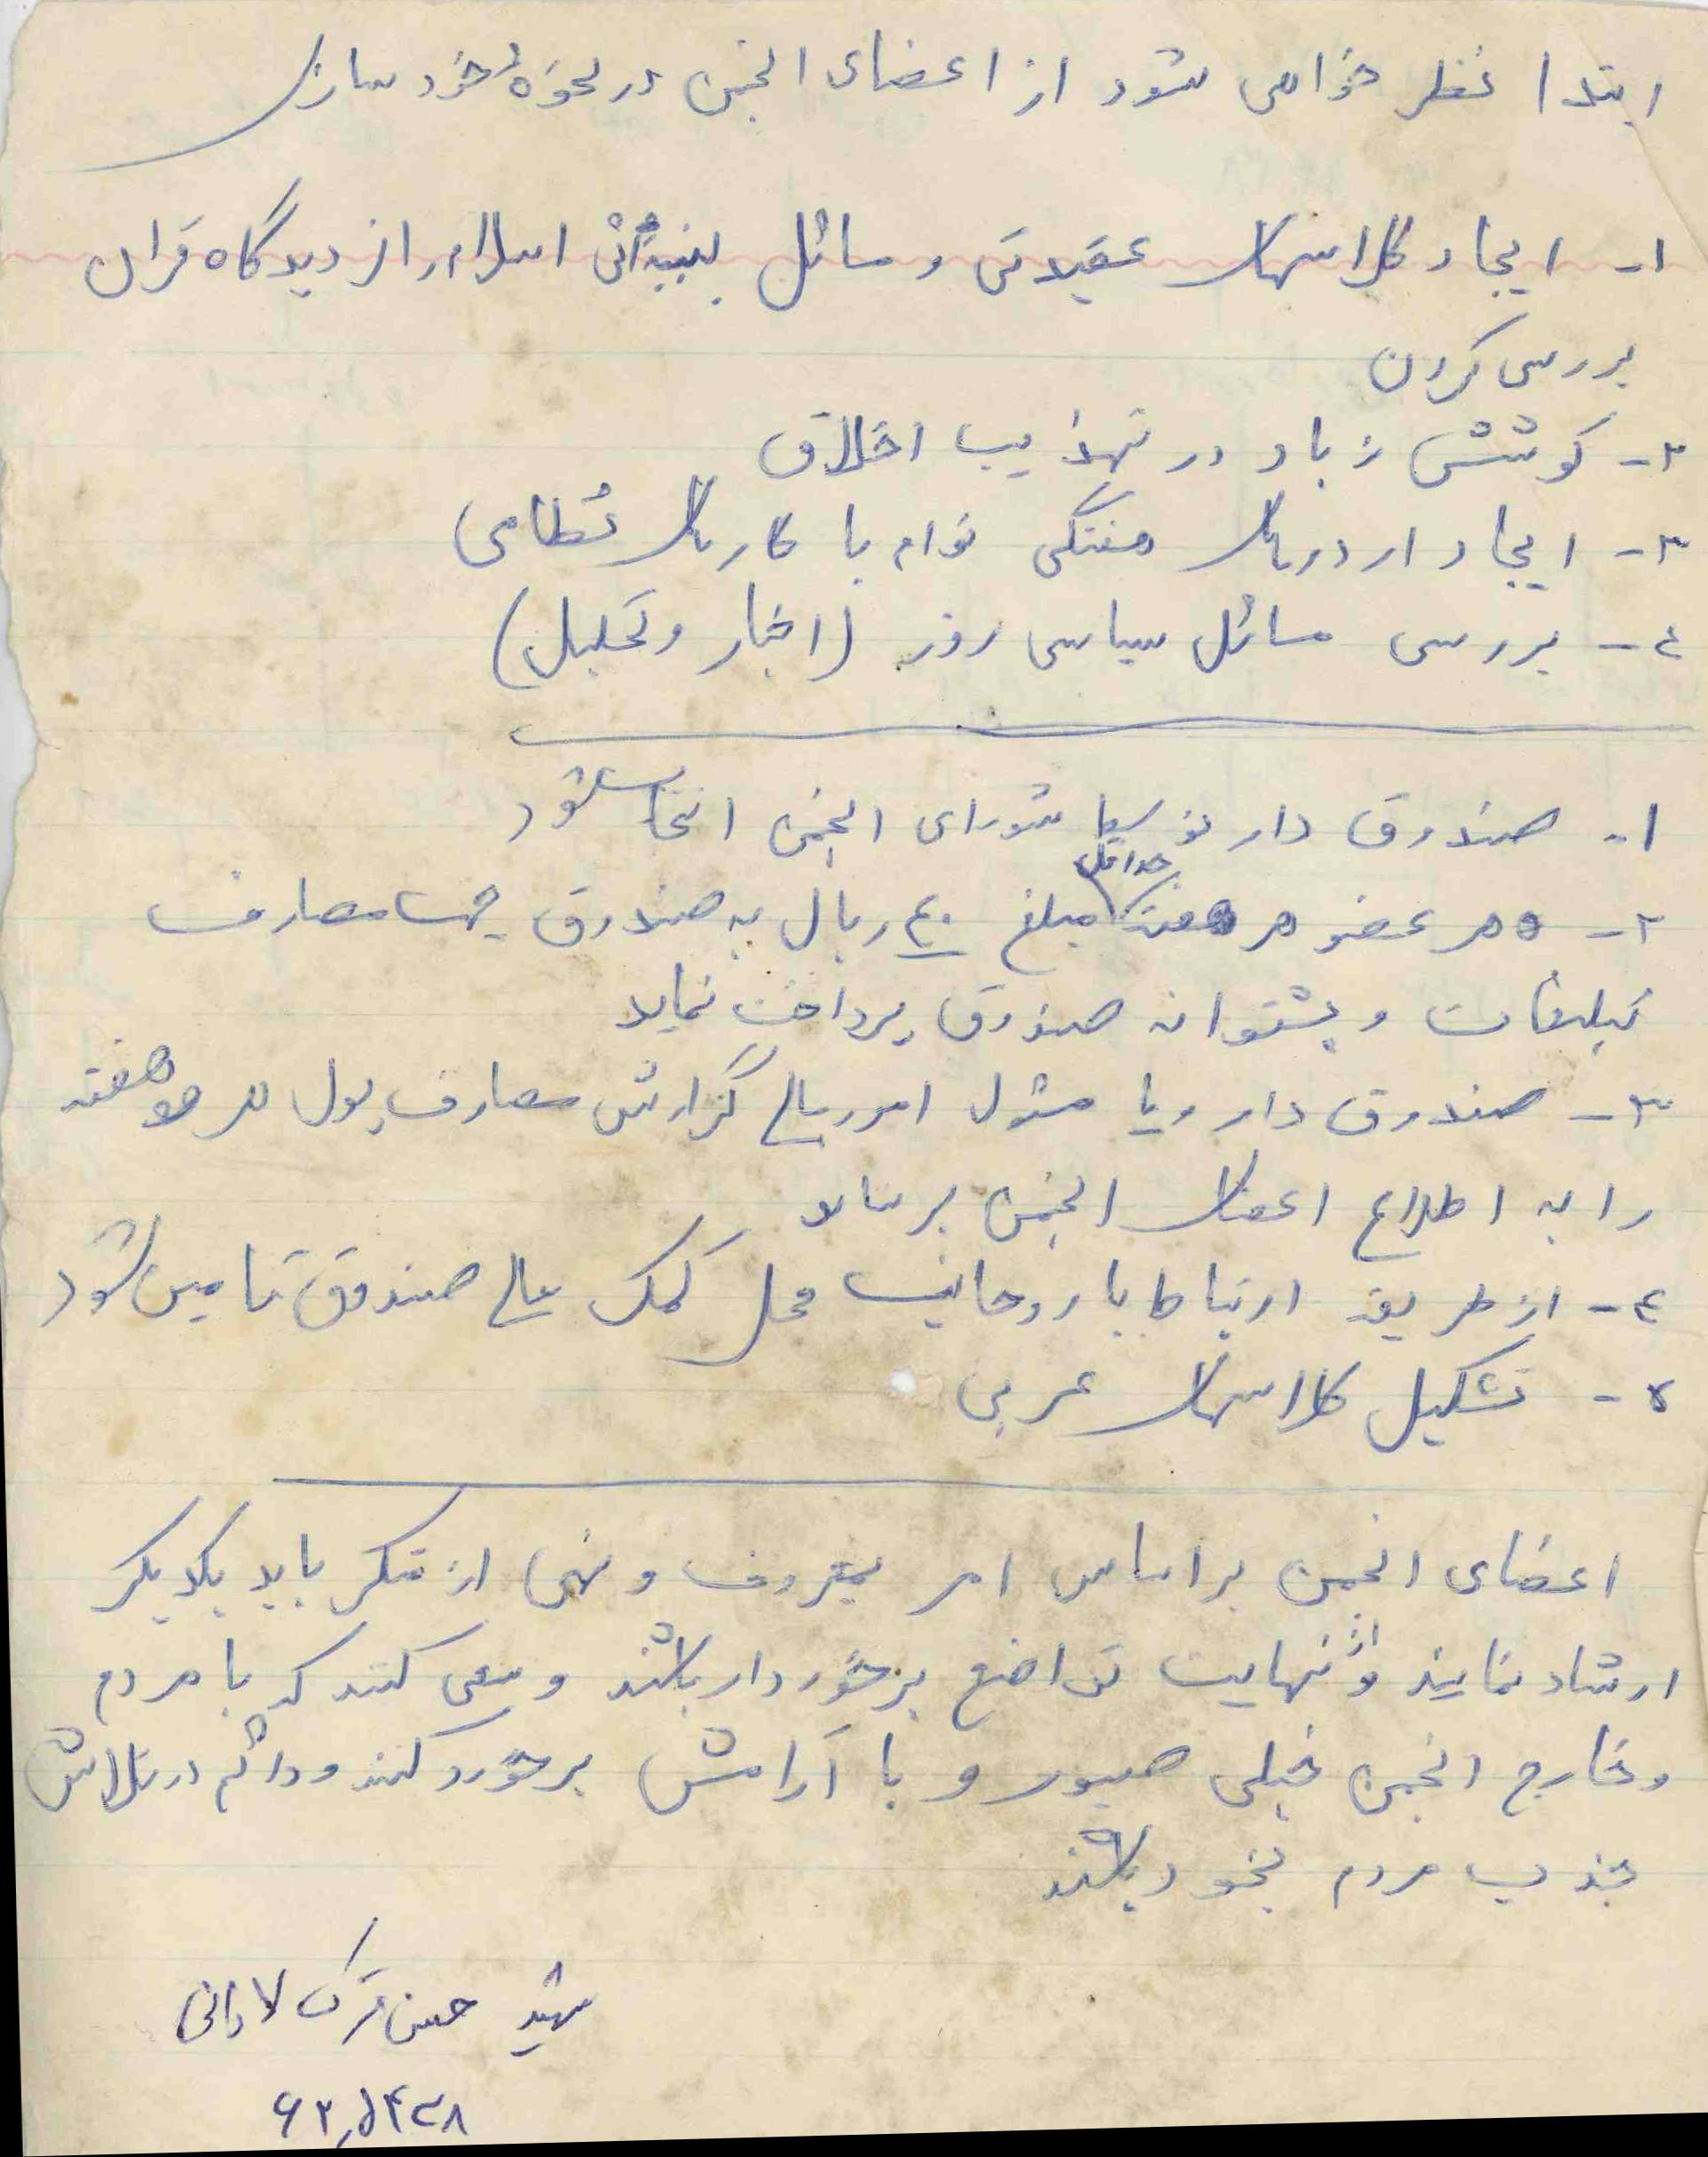 ابتدا نظر خواهی شود از اعضای انجمن در نحوهٔ خودسازی
۱- ایجاد کلاسهای عقیدتی و مسائل اسلام را از دیدگاه قرآن
بررسی کردن
۲- کوشش زیاد در تهذیب اخلاق
۳- ایجاد اردوهای هفتگی توام با کارهای نظامی
۴- بررسی مسائل سیاسی روز (اخبار و تحلیل)
۱- صندوق دار توسط شورای انجمن انتخاب شود
۲- هر عضو هر هفته حداقل مبلغ ۴۰ ریال به صندوق جهت مصارف
تبلیغات و پشتوانه صندوق پرداخت نماید
۳- صندوق دار و یا مسئول امور مالی گزارش مصارف پول هر هفته
را به اطلاع اعضای انجمن برساند
۴- از طریق ارتباط با روحانیت محل کمک مالی صندوق تامین شود
۵- تشکیل کلاسهای عربی
اعضای انجمن براساس امر بمعروف و نهی از منکر باید یکدیگر
ارشاد نمایند و از نهایت تواضع برخوردار باشند و سعی کنند که با مردم
و خارج انجمن خیلی صبور و با آرامش برخورد کنند و دائم در تلاش
جذب مردم بخود باشند
شهید حسن ترک لادانی